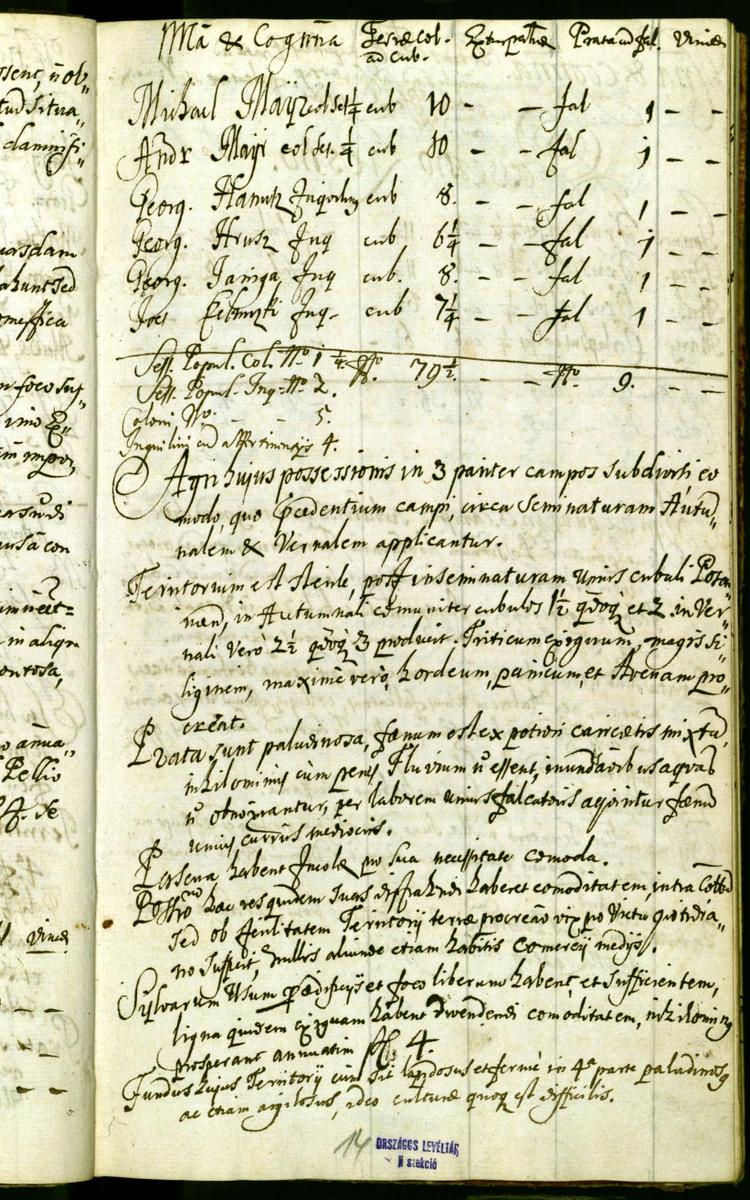 ssenc, ii ob„
tud situa„
damnifi„
uasdam
ahunt sed
omeffica
n foco suf„
imo
im impor„
ursu di
uisa con
in align
ontosa,
o annua„
Pellio
ff. de
Vineæ
Nna & Cognna Terræ col. ad cub. Extirpatæ Prata ad fal. Vineæ
Michael Mayr col set ¼ cub 10 - - fal 1 - -
Andr Mayr col set. ¼ cub 10 - - fal 1 - -
Georg. Hanusz Inquilinus cub 8. - - fal 1 - -
Georg. Hrusz Inq cub 6¼ - - fal 1 - -
Georg. Jamga Inq cub. 8. - - fal 1 - -
Joes Inq- cub 7¼ - - fal 1 - -
Sess. Popul. Col. No 1 ¼ No. 79½. - - No. 9. - -
Sess. Popul. Inq- No 2.
Coloni No. - - 5.
Inquilini cum appertinentijs 4.
Agri hujus possessionis in 3 pariter campos subdivisi eo
modo, quo præcedentium campi, circa seminaturam Autu„
nalem & Vernalem applicantur.
Territorium est sterile, post inseminaturam unius cubuli Poson„
nien, in Autumnali comuniter cubulos 1½ qdoq et 2. in Ver„
nali Vero 2½ qdoq 3 producit. Triticum exiguum, magis si„
liginem, maxime vero, hordeum, panicum, et Avenam pro„
creat.
Prata sunt paludinosa, fænum est ex potiori caricetis mixtu,
nihilominus cum penes Fluvium n essent, inundaonibus aquar
n obnoxiantur, per laborem unius falcatoris acquiritur fænu
unius currus mediocris.
Pascua habent Incolæ pro sua necessitate comoda.
Possio hæc res quidem suas distrahendi haberet comoditatem, intra Cottu
sed ob sterilitatem Territorij terræ procreao vix pro Victu quotidia„
no sufficit, nullis aliunde etiam habitis Comercij medijs.
Sylvarum Usum pro ædificijs et foco liberum habent, et sufficientem,
ligna quidem exiguam habent divendendi comoditatem, nihilominus
prosperant annuatim ff. 4.
Fundus hujus Territorij cum sit lapidosus et ferme in 4a parte paludinosus
ac etiam argilosus, ideo culturæ quoq est difficilis.
14
ORSZÁGOS LEVÉLTÁR
N szekció